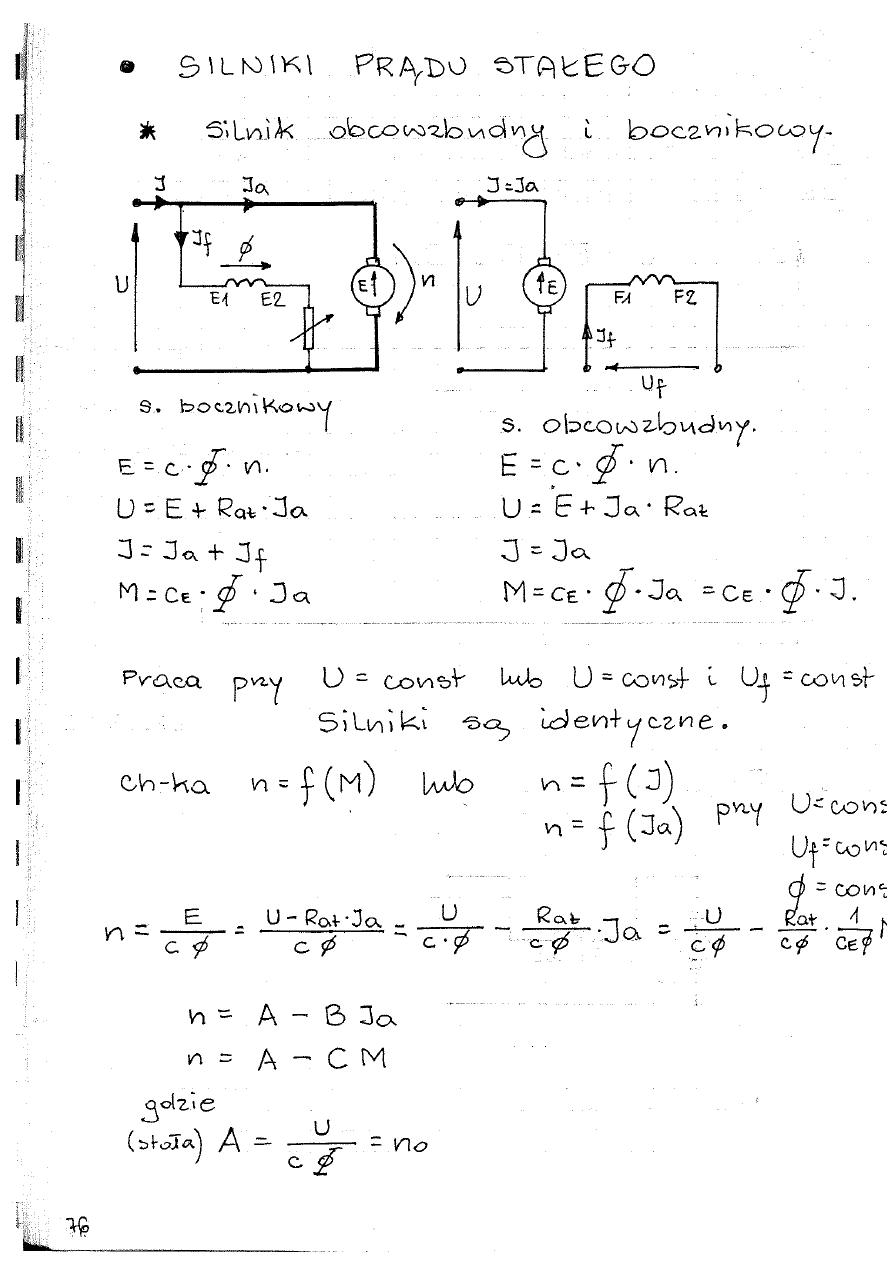 • SILNIKI PRĄDU STAŁEGO
* Silnik obcowzbudny i bocznikowy.
J Ja J=Ja
Jf ϕ
U E1 E2 E n U E F1 F2
Jf
Uf
s. bocznikowy
s. obcowzbudny.
E = c · Φ · n.
E = c · Φ · n.
U = E + Rat · Ja
U = E + Ja · Rat
J = Ja + Jf
J = Ja
M = CE · Φ · Ja
M = CE · Φ · Ja = CE · Φ · J.
Praca przy U = const lub U = const i Uf = const
Silniki są identyczne.
ch-ka n = f(M) lub n = f(J)
n = f(Ja) przy U = cons
Uf = cons
ϕ = cons
n = E / cϕ = U - Rat·Ja / cϕ = U / c·ϕ - Rat / cϕ · Ja = U / cϕ - Rat / cϕ · 1 / CEϕ M
n = A - B Ja
n = A - C M
gdzie
(stała) A = U / cΦ = no
76